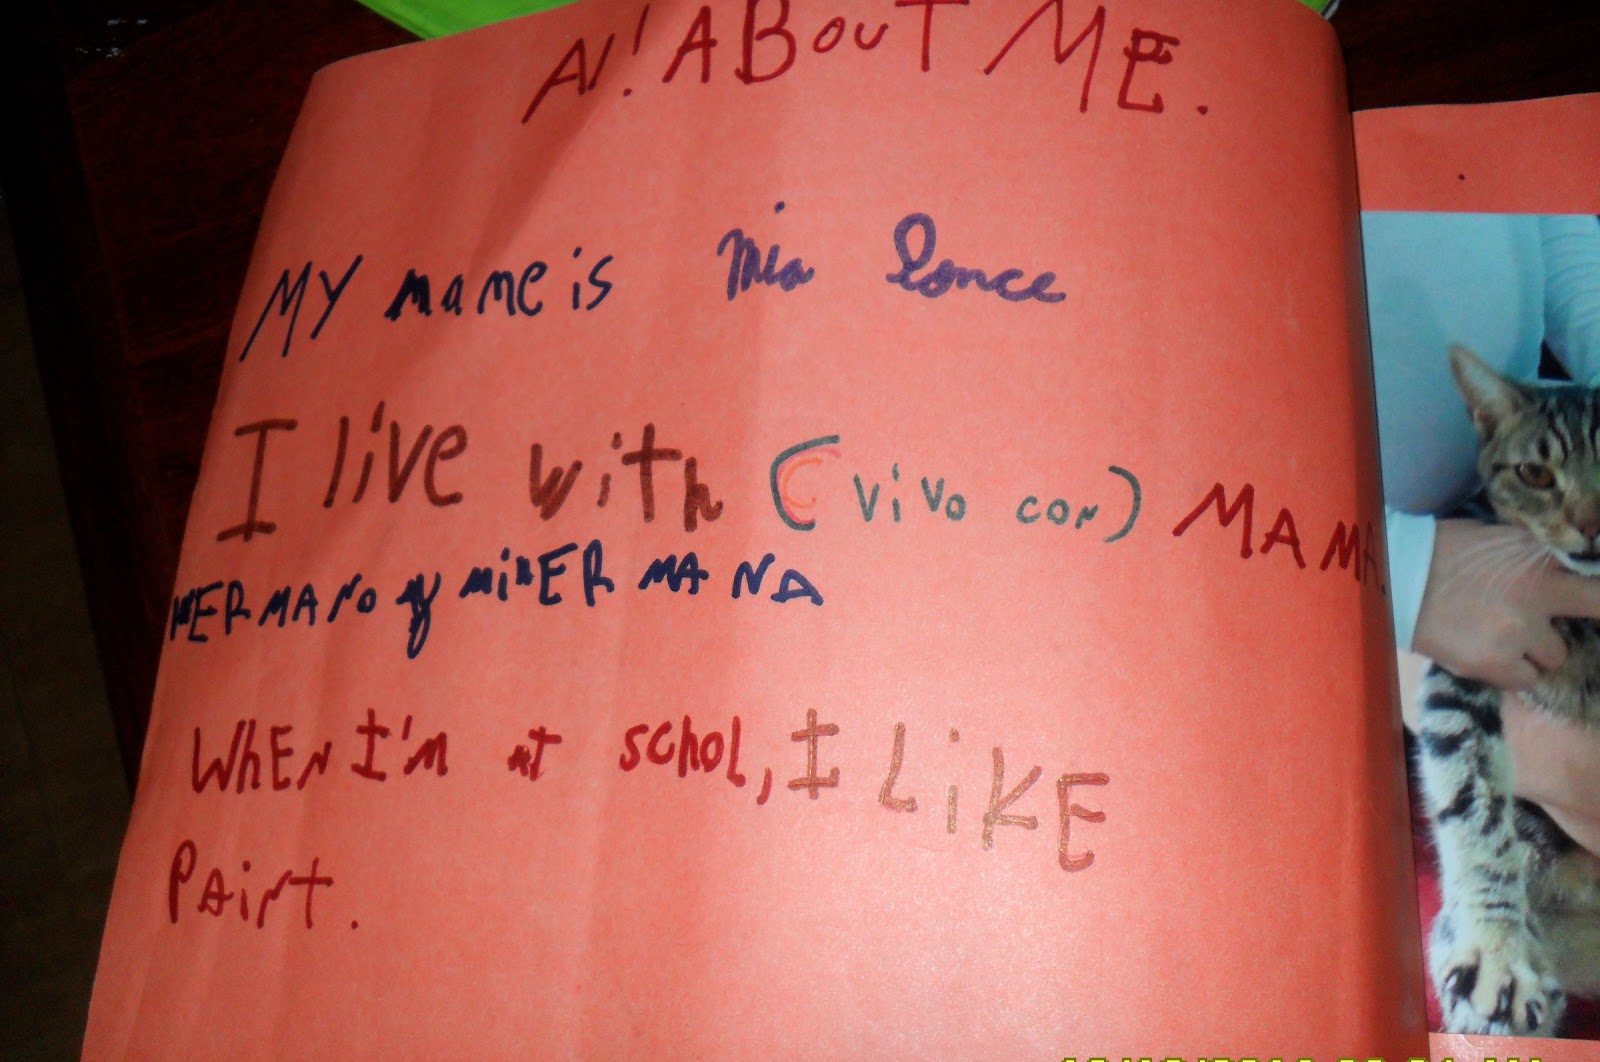 Al! ABOUT ME.
MY mame is Mia Ponce
I live with (vivo con) MAMA.
HERMANO y MI HERMANA
WhEN I'm at schol, I LiKE
PAiNt.